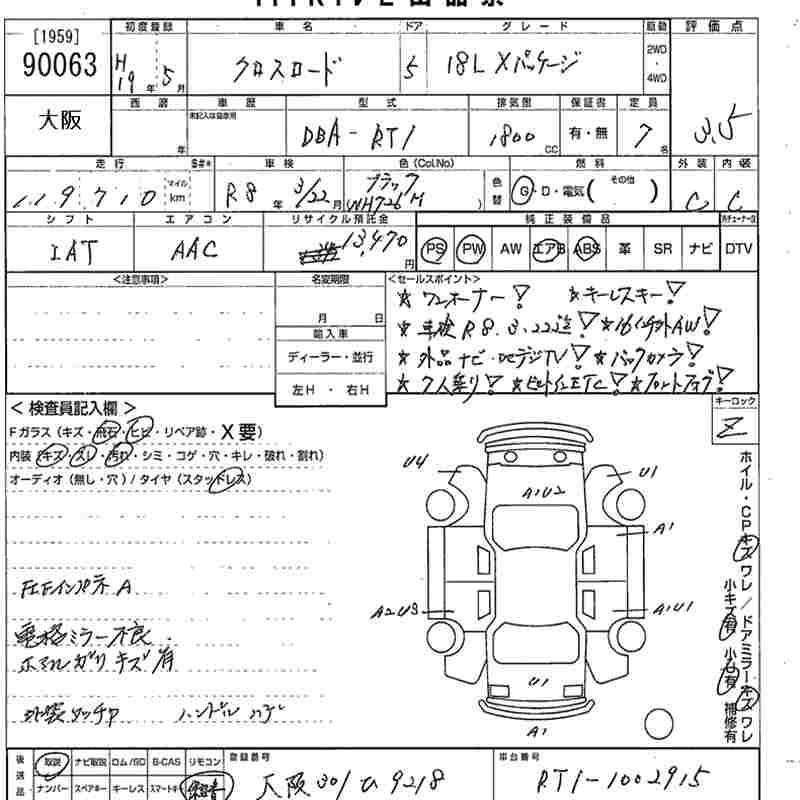 [1959]
90063
初度登録 車名 ドア グレード 駆動 評価点
H19年5月 クロスロード 5 18L Xパッケージ 2WD・4WD 3.5
大阪
西暦 年 車歴 型式 排気量 保証書 定員
未記入は自家用 DBA-RT1 1800CC 有・無 7名
走行 S#* 車検 色(Col.No) 燃料 外装 内装
119710 マイル km R8年3/22月 ブラック 色替 G・D・電気( その他 ) C C
シフト エアコン リサイクル預託金 純正装備品
IAT AAC 13,470円 PS PW AW エアB ABS 革 SR ナビ DTV
<注意事項> 名変期限 <セールスポイント>
☆ワンオーナー! ☆キーレスキー!
月 日 ☆車検R8.3.22迄! ☆16インチ外AW!
輸入車
ディーラー・並行 ☆外品ナビ・地デジTV! ☆バックカメラ!
左H・右H ☆7人乗り! ☆ビルトインETC! ☆フルフラット!
キーロック
Z
<検査員記入欄>
Fガラス(キズ・飛石・ヒビ・リペア跡・X要)
内装(キズ・スレ・汚れ・シミ・コゲ・穴・キレ・破れ・割れ)
オーディオ(無し・穴)/タイヤ(スタッドレス)
A
電格ミラー不良
ホイルガリキズ有
外装タッチP ハンドル
U4 U1
A1U2
A1
A2U3 A1U1
U1
A1
ホイル・CPキズワレ/ドアミラーキズワレ
小キズ有 小凹有 補修有
後送品 取説 ナビ取説 ロム/SD B-CAS リモコン 登録番号 車台番号
ナンバー スペアキー キーレス スマートキー 保証書 大阪301ひ9218 RT1-1002915